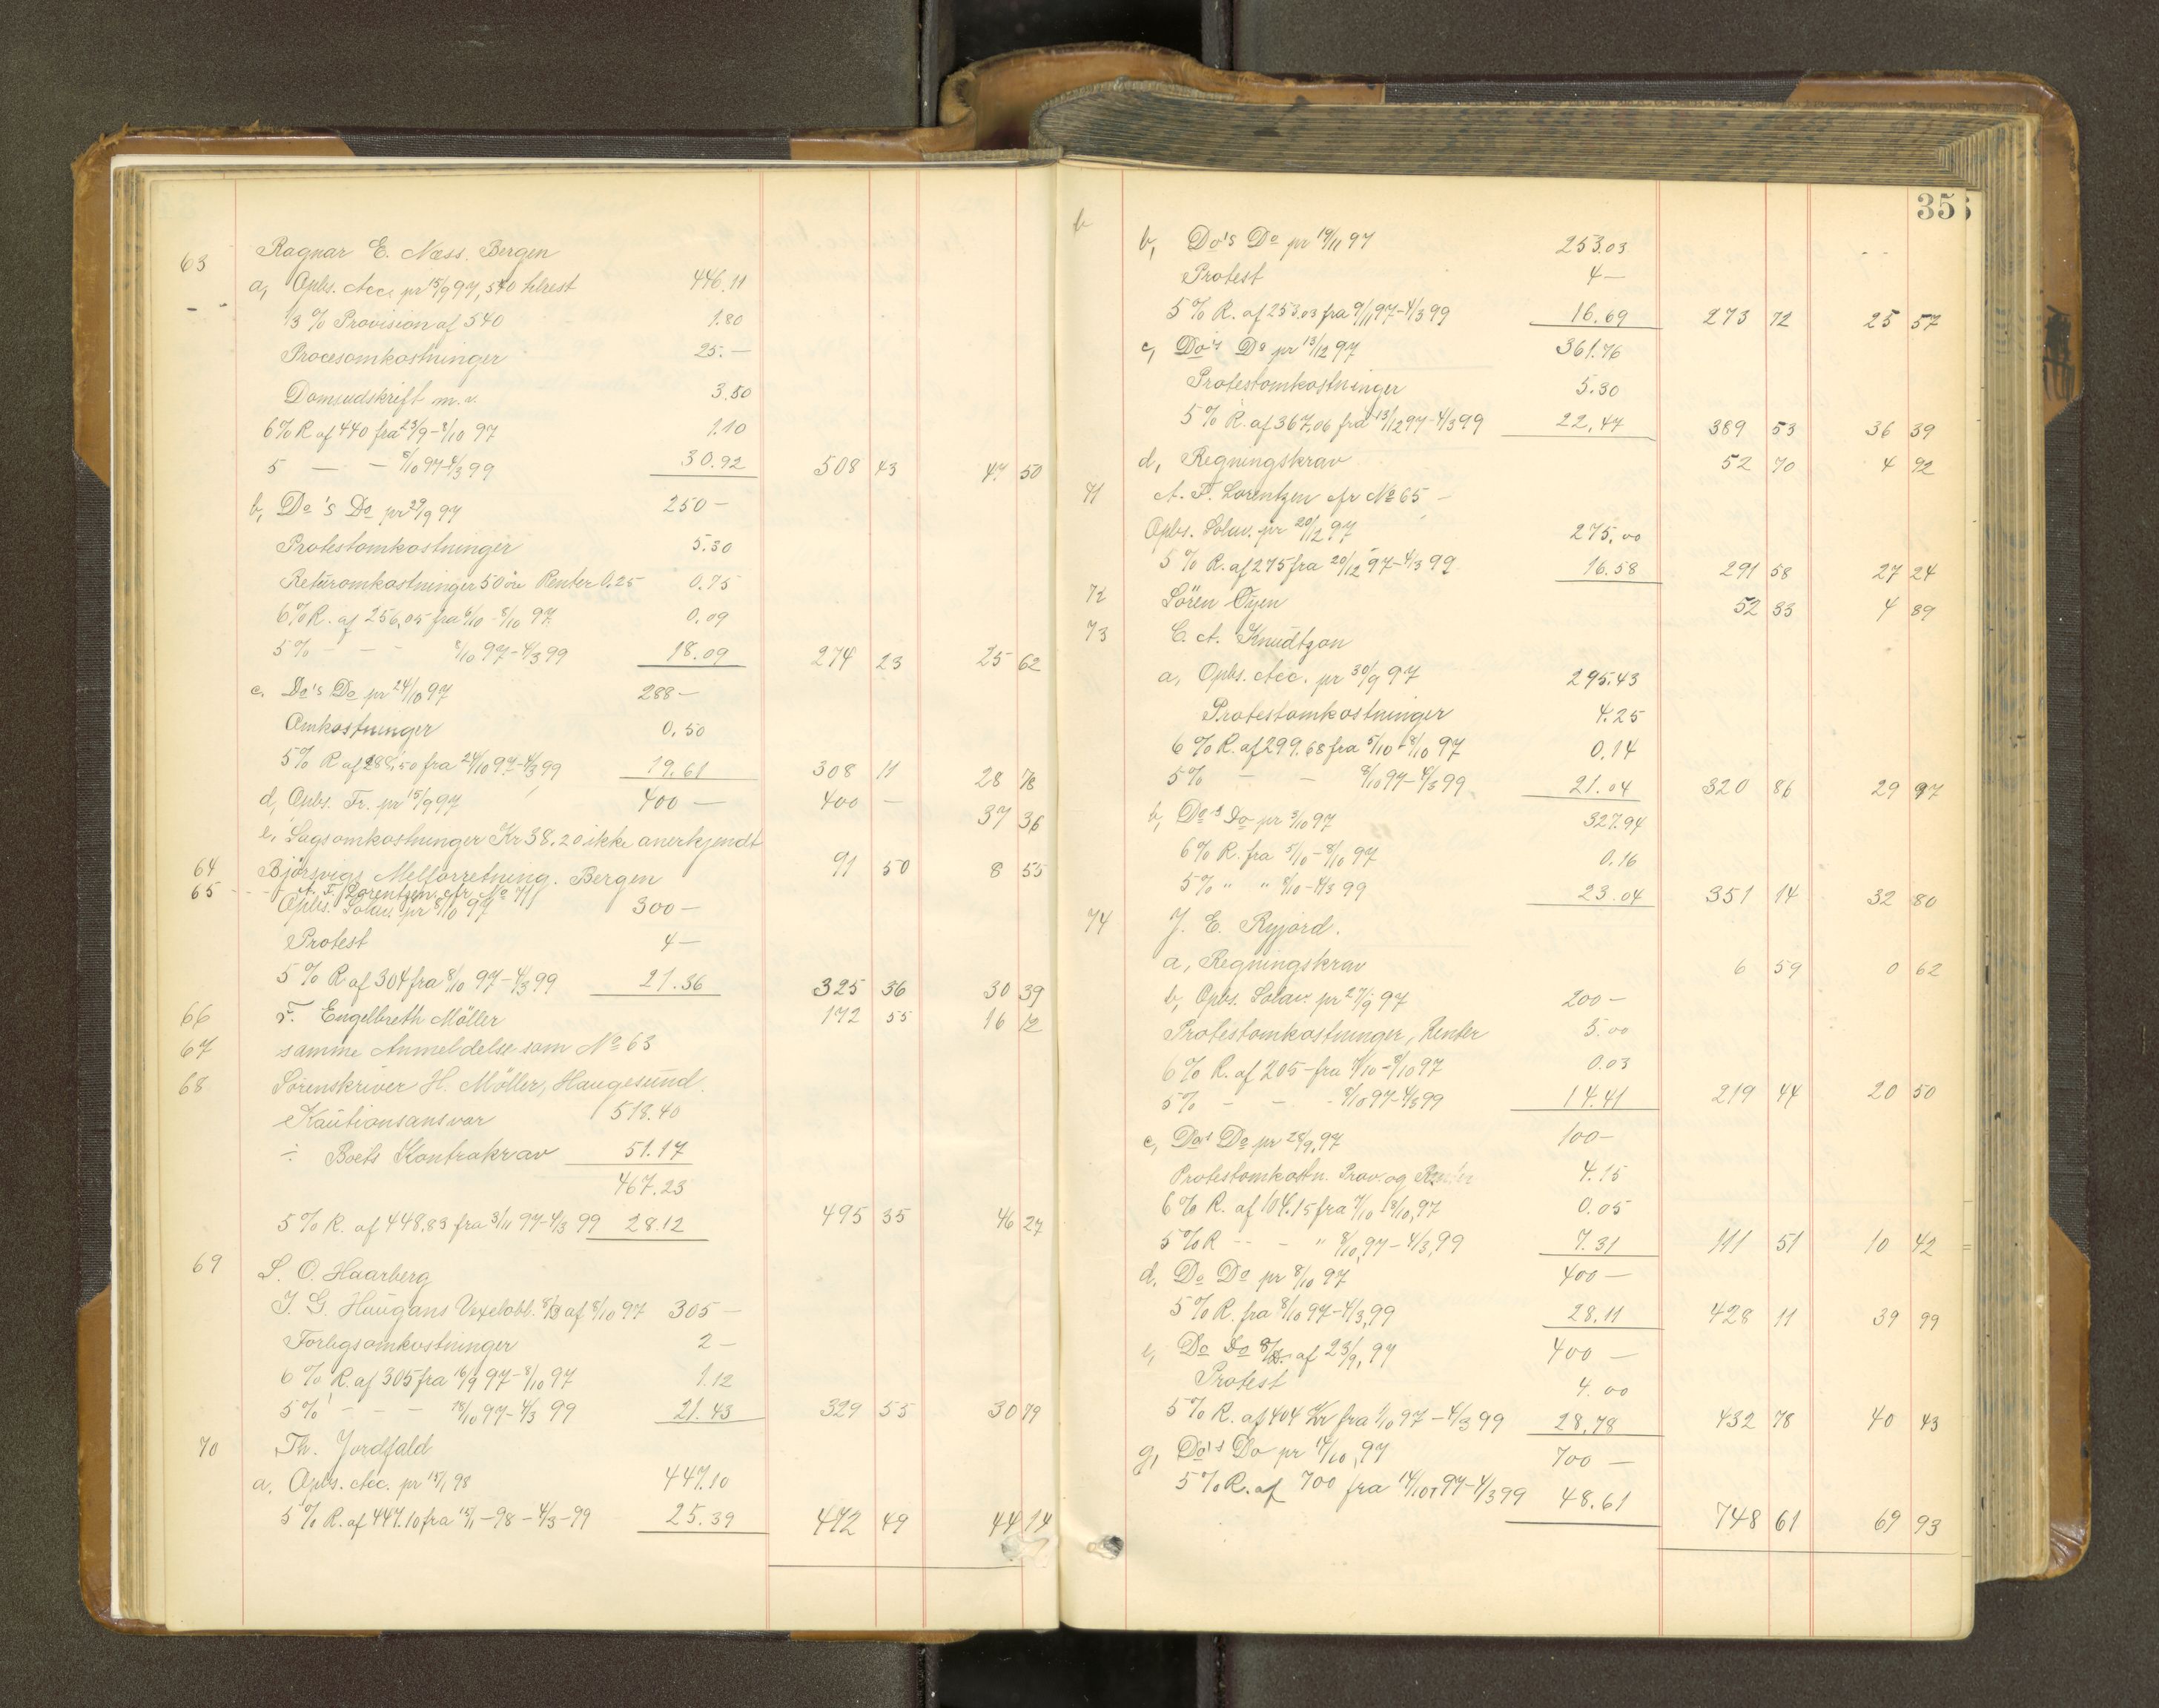 63 Ragnar E. Næss. Bergen
a, Opbs. Acc. pr 15/9 97, 540 hlrest 446.11
1/3 % Provision af 540 1.80
Procesomkostninger 25.—
Domsudskrift m.v. 3.50
6% R af 440 fra 23/9 - 8/10 97 1.10
5 — — 8/10 97 - 4/3 99 30.92 508 43 47 50
b, Do's Do pr 29/9 97 250 —
Protestomkostninger 5.30
Returomkostninger 50 øre Renter 0.25 0.75
6% R. af 256,05 fra 6/10 - 8/10 97 0.09
5% - - - 8/10 97 - 4/3 99 18.09 274 23 25 62
c. Do's Do pr 24/10 97 288 —
Omkostninger 0.50
5% R af 288,50 fra 24/10 97 - 4/3 99 19.61 308 11 28 78
d, Opbs. Fr. pr 15/9 97 400 — 400 — 37 36
e, Sagsomkostninger Kr 38.20 ikke anerkjendt
64 Bjørsvigs Melforretning. Bergen 91 50 8 55
65 - - - A. F. Lorentzen cfr No 71
Opbs. Solav. pr 8/10 97 300 —
Protest 4 —
5% R af 304 fra 8/10 97 - 4/3 99 21.36 325 36 30 39
66 F. Engelbreth Möller 172 55 16 12
67 samme Anmeldelse som No 63
68 Sorenskriver H. Möller, Haugesund.
Kautionsansvar 518.40
÷ Boets Kontrakrav 51.17
467.23
5% R. af 448.83 fra 3/11 97 - 4/3 99 28.12 495 35 46 27
69 S. O. Haarberg
J. G. Haugans Vexelobl. af 8/10 97 305 —
Forligsomkostninger 2 —
6% R. af 305 fra 16/9 97 - 8/10 97 1.12
5% - - - 18/10 97 - 4/3 99 21.43 329 55 30 79
70 Th. Jordfald
a. Opbs. Acc. pr 15/1 98 447.10
5% R. af 447.10 fra 15/1 - 98 - 4/3 - 99 25.39 472 49 44 14
356
b, Do's Do pr 19/11 97 253.03
Protest 4 —
5% R. af 253.03 fra 9/11 97 - 4/3 99 16.69 273 72 25 57
c, Do's Do pr 13/12 97 361.76
Protestomkostninger 5.30
5% R. af 367.06 fra 13/12 97 - 4/3 99 22,47 389 53 36 39
d, Regningskrav 52 70 4 92
71 A. F. Lorentzen cfr No 65 -
Opbs. Solav. pr 20/12 97 275,00
5% R. af 275 fra 20/12 97 - 4/3 99 16.58 291 58 27 24
72 Sören Öyen 52 33 4 89
73 C. A. Knudtzon
a, Opbs. Acc. pr 30/9 97 295.43
Protestomkostninger 4.25
6% R. af 299.68 fra 5/10 - 8/10 97 0.14
5% - - 8/10 97 - 4/3 99 21.04 320 86 29 97
b, Do's Do pr 3/10 97 327.94
6% R. fra 5/10 - 8/10 97 0.16
5% " " 8/10 - 4/3 99 23.04 351 14 32 80
74 J. E. Ryjord.
a, Regningskrav 6 59 0 62
b, Opbs. Solav. pr 27/9 97 200 —
Protestomkostninger, Renter 5.00
6% R. af 205 - fra 7/10 - 8/10 97 0.03
5% - - - 8/10 97 - 4/3 99 14.41 219 44 20 50
c, Do's Do pr 28/9, 97 100 —
Protestomkostn. Prov. og Renter 4.15
6% R. af 104.15 fra 7/10 - 8/10, 97 0.05
5% R - - - " 8/10, 97 - 4/3, 99 7.31 111 51 10 42
d. Do Do pr 8/10 97 400 —
5% R. fra 8/10 97 - 4/3, 99 28.11 428 11 39 99
e, Do Do af 23/9, 97 400 —
Protest 4.00
5% R. af 404 Kr fra 1/10 97 - 4/3 99 28.78 432 78 40 43
g, Do's Do pr 14/10, 97 700 —
5% R. af 700 fra 14/10 97 - 4/3 99 48.61 748 61 69 93